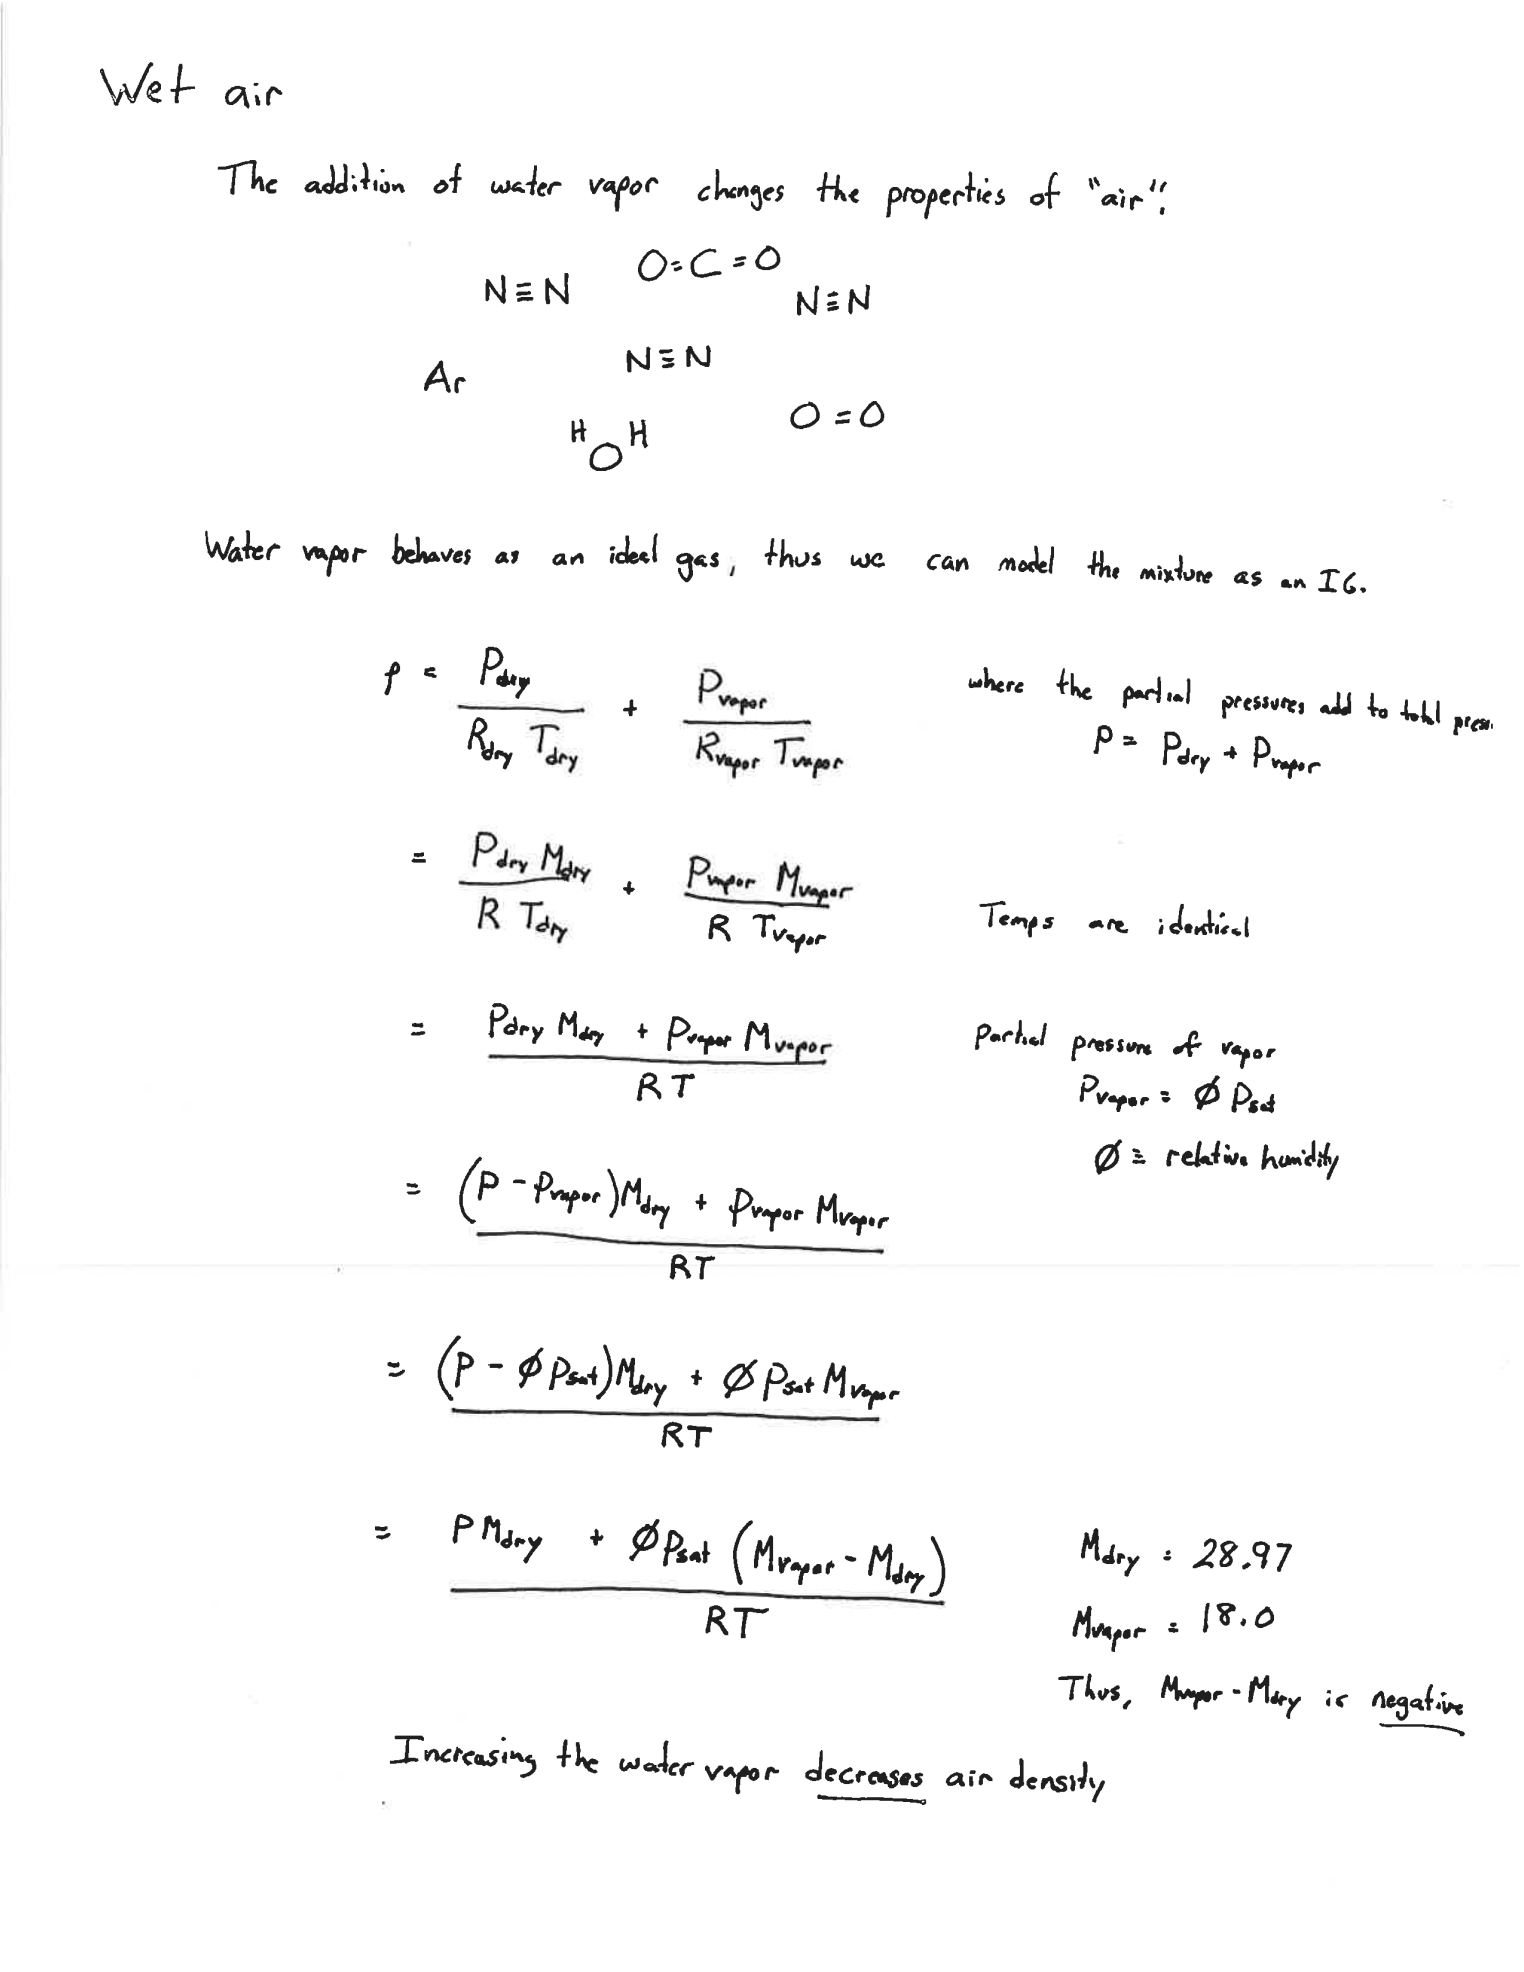 Wet air
The addition of water vapor changes the properties of "air":
O=C=O
N≡N
N≡N
N≡N
Ar
O=O
H O H
Water vapor behaves as an ideal gas, thus we can model the mixture as an IG.
ρ = P_dry / (R_dry T_dry) + P_vapor / (R_vapor T_vapor)
where the partial pressures add to total press.
P = P_dry + P_vapor
= P_dry M_dry / (R T_dry) + P_vapor M_vapor / (R T_vapor)
Temps are identical
= (P_dry M_dry + P_vapor M_vapor) / RT
Partial pressure of vapor
P_vapor = Ø P_sat
Ø ≡ relative humidity
= ((P - P_vapor) M_dry + P_vapor M_vapor) / RT
= ((P - Ø P_sat) M_dry + Ø P_sat M_vapor) / RT
= (P M_dry + Ø P_sat (M_vapor - M_dry)) / RT
M_dry = 28.97
M_vapor = 18.0
Thus, M_vapor - M_dry is negative
Increasing the water vapor decreases air density